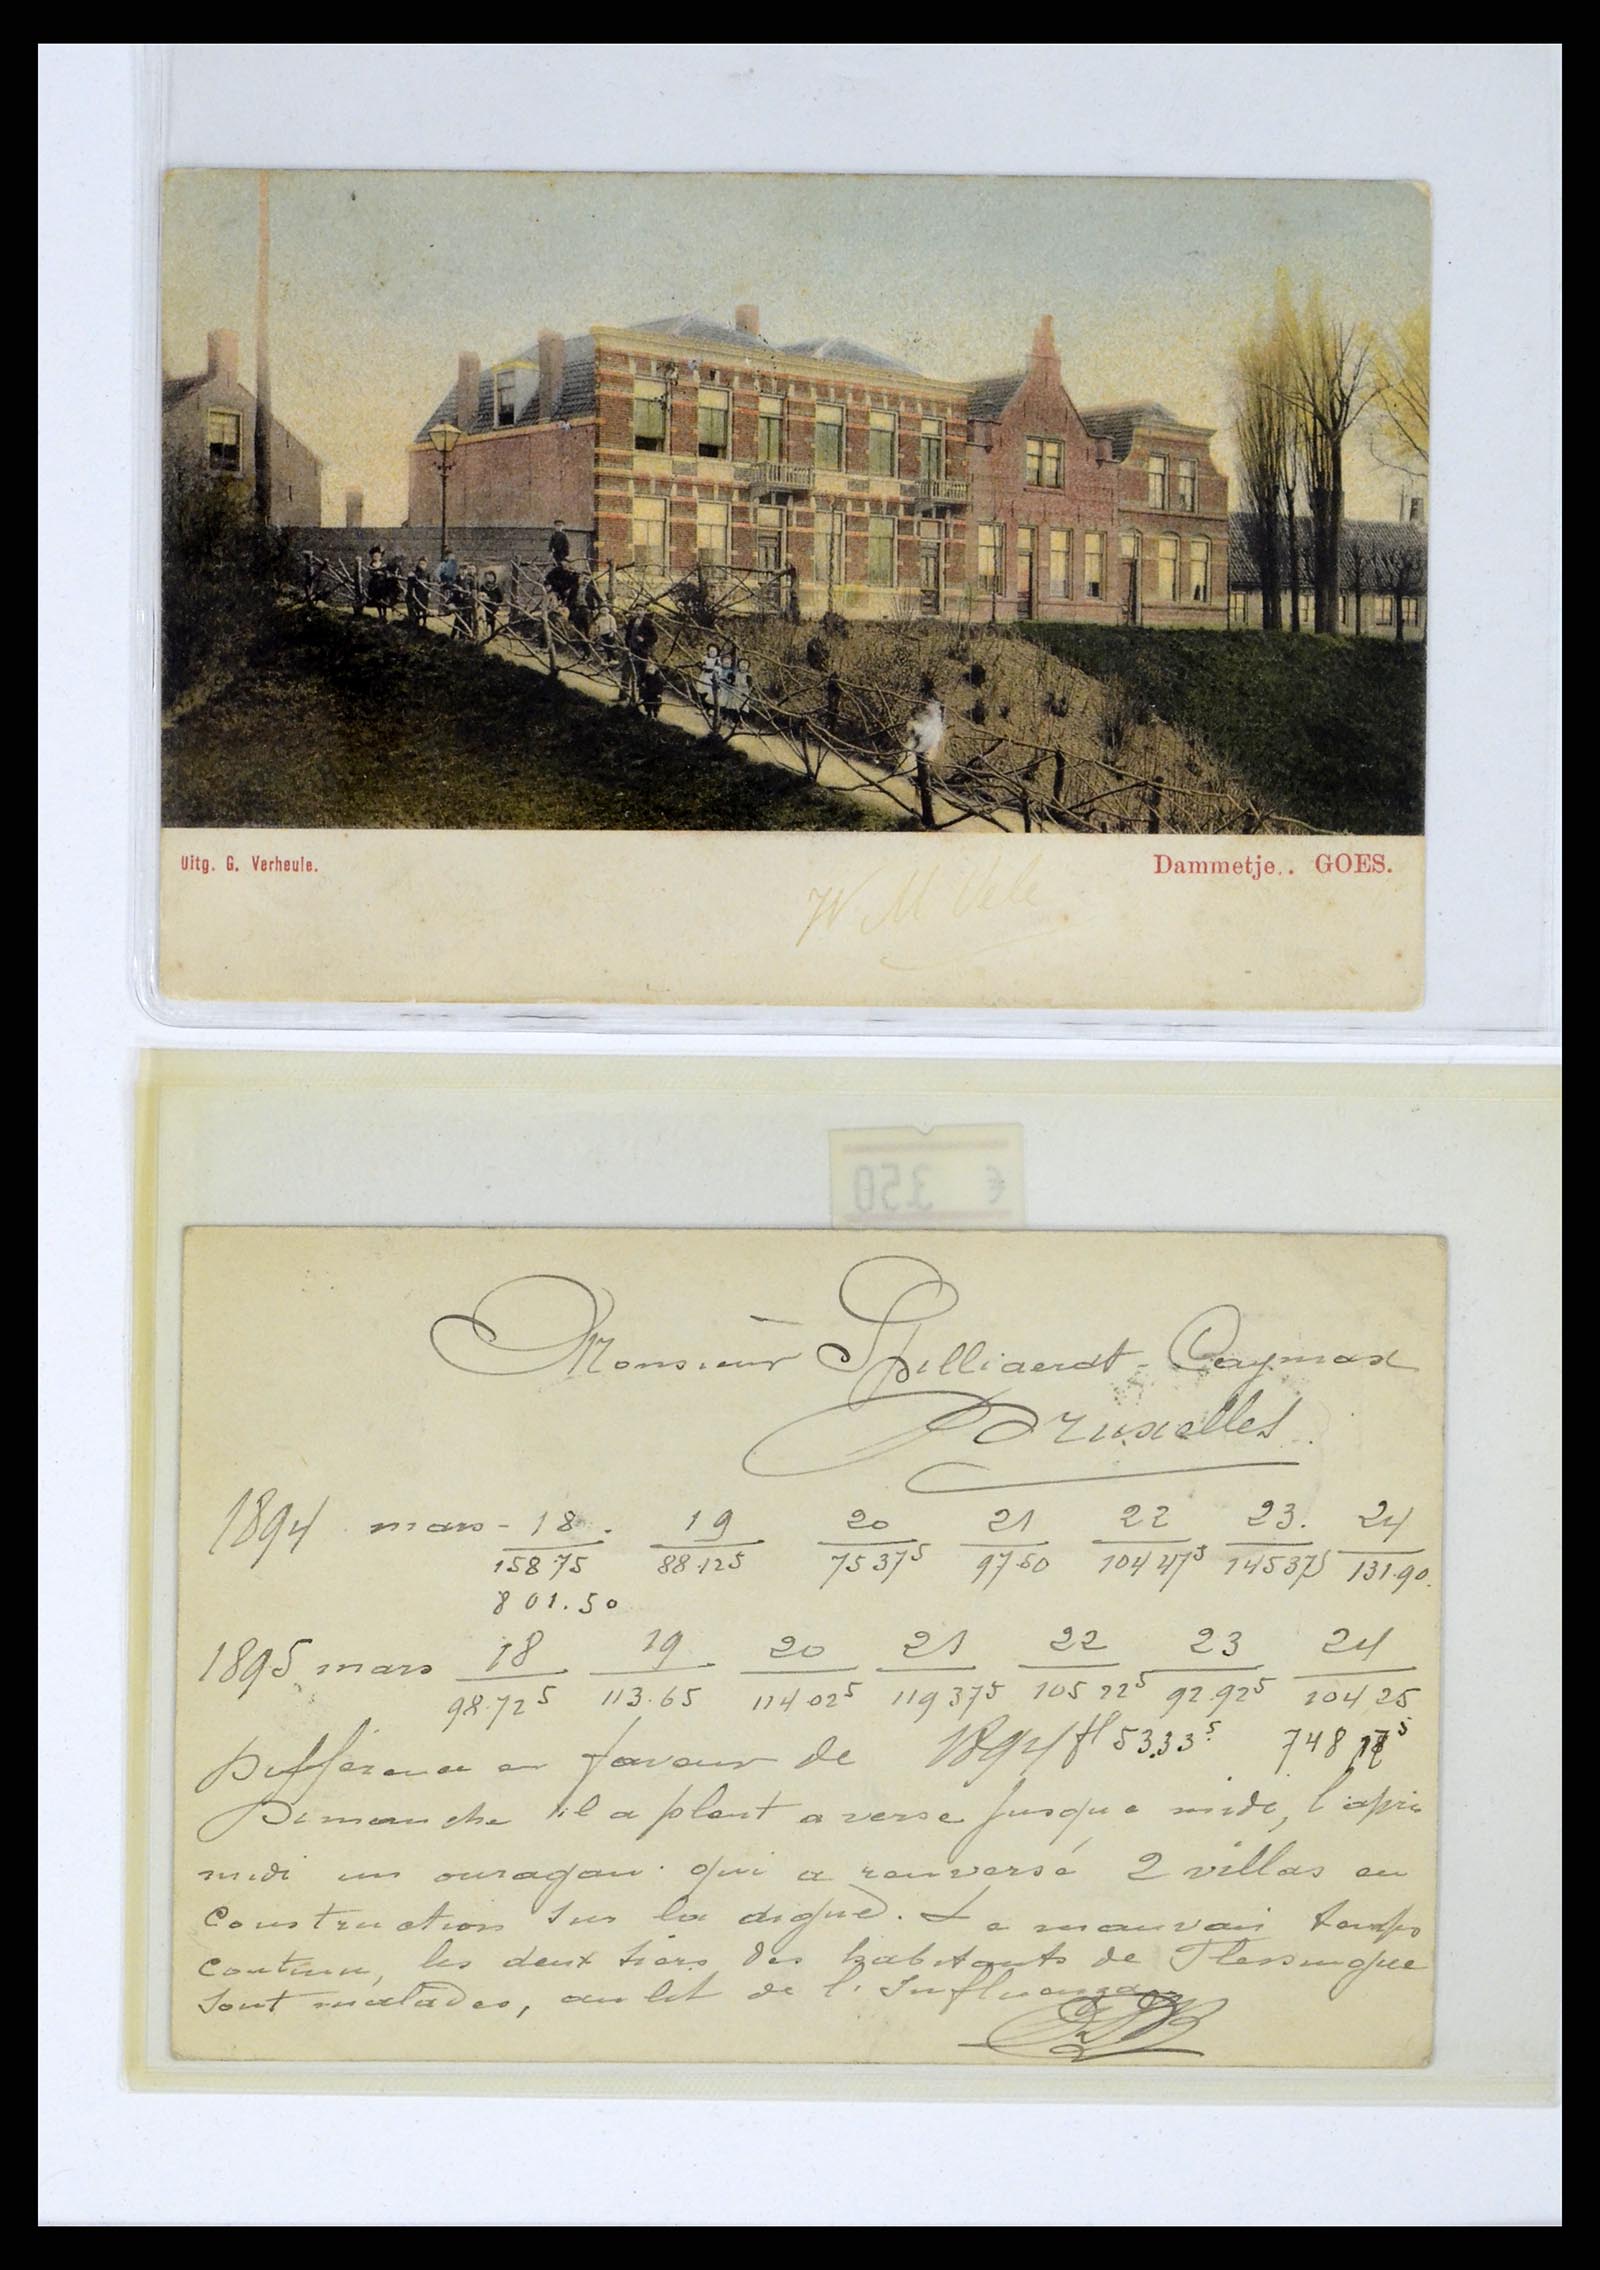 Uitg. G. Verheule.
Dammetje.. GOES.
W. M.
€ 350
Monsieur Spilliaerdt-Caymax
Bruxelles.
1894 mars - 18. 19 20 21 22 23. 24
158.75 88.125 75 375 97.50 104 475 145 375 131.90.
801.50
1895 mars 18 19 20 21 22 23 24
98.725 113.65 114.025 119 375 105 225 92.925 104 25
Difference en faveur de 1894 fl 53.335 748 175
Dimanche il a pleut a verse jusque midi, l'apris
midi un ouragan qui a renversé 2 villas en
construction sur la digue. Le mauvais temps
continu, les deux tiers des habitants de Flessingue
sont malades, au lit de l'Influenza